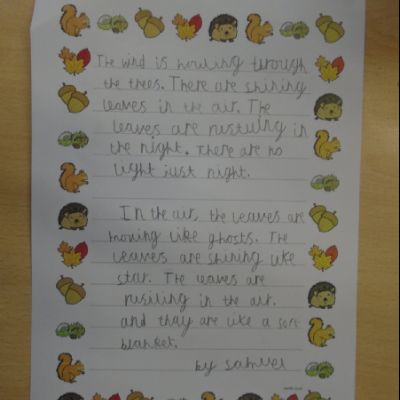 The wind is howling through
the trees. There are shining
leaves in the air. The
leaves are rustuling in
the night. There are no
light just night.
In the air, the leaves are
moving like ghosts. The
leaves are shining like
star. The leaves are
rusiling in the air.
and thay are like a soft
blanket.
by Samuel